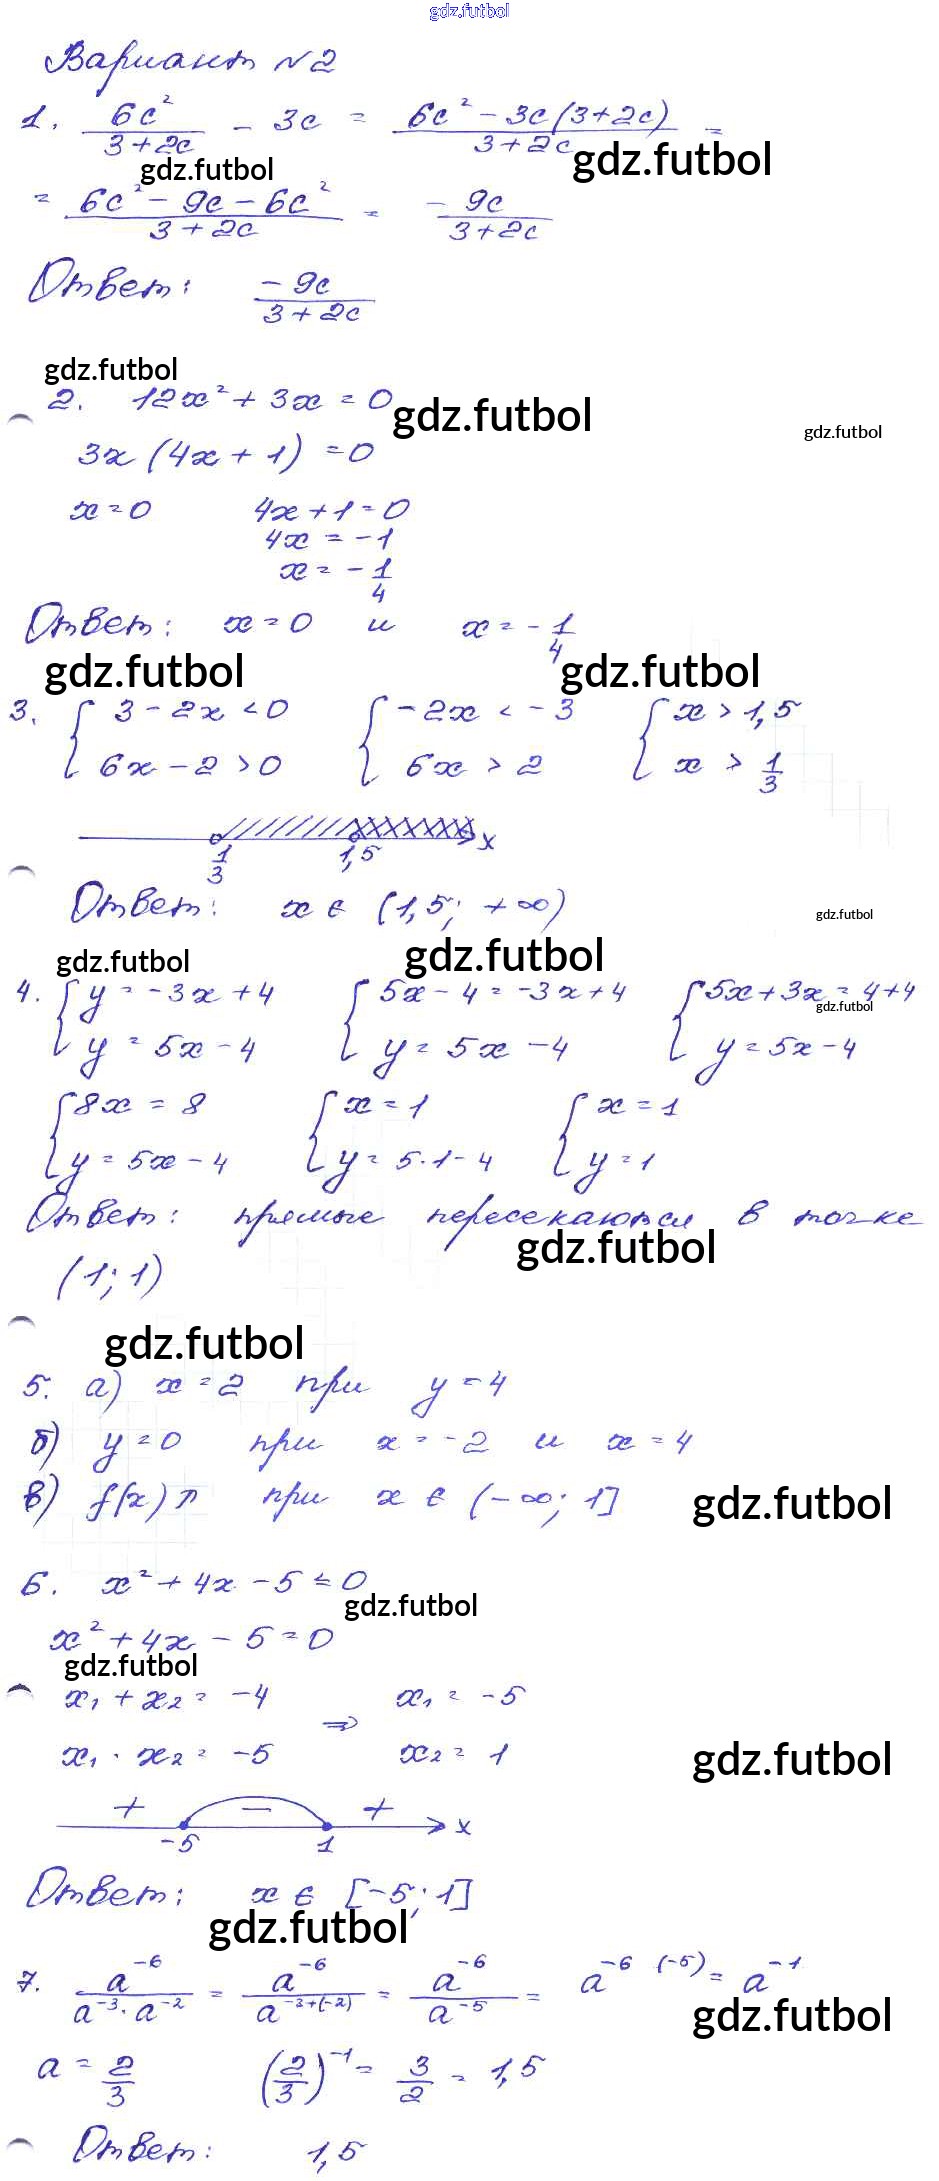 gdz.futbol
Вариант №2
1. 6c²/(3+2c) - 3c = (6c² - 3c(3+2c))/(3+2c) =
gdz.futbol gdz.futbol
= (6c² - 9c - 6c²)/(3+2c) = -9c/(3+2c)
Ответ: -9c/(3+2c)
gdz.futbol
2. 12x² + 3x = 0
gdz.futbol
gdz.futbol
3x(4x+1) = 0
x=0 4x+1=0
4x = -1
x = -1/4
Ответ: x=0 и x=-1/4
gdz.futbol gdz.futbol
3. { 3-2x<0 { -2x < -3 { x > 1,5
6x-2>0 6x > 2 x > 1/3
x
1/3 1,5
Ответ: x ∈ (1,5; +∞)
gdz.futbol
gdz.futbol gdz.futbol
4. { y=-3x+4 { 5x-4=-3x+4 { 5x+3x=4+4
gdz.futbol
y=5x-4 y=5x-4 y=5x-4
{ 8x=8 { x=1 { x=1
y=5x-4 y=5·1-4 y=1
Ответ: прямые пересекаются в точке
gdz.futbol
(1; 1)
gdz.futbol
5. а) x=2 при y=4
б) y=0 при x=-2 и x=4
в) f(x)↗ при x ∈ (-∞; 1]
gdz.futbol
6. x² + 4x - 5 ≤ 0
gdz.futbol
x² + 4x - 5 = 0
gdz.futbol
x₁ + x₂ = -4 x₁ = -5
⇒
x₁ · x₂ = -5 x₂ = 1
gdz.futbol
+ - +
-5 1 x
Ответ: x ∈ [-5; 1]
gdz.futbol
7. a⁻⁶/(a⁻³·a⁻²) = a⁻⁶/a⁻³⁺⁽⁻²⁾ = a⁻⁶/a⁻⁵ = a⁻⁶ ⁽⁻⁵⁾ = a⁻¹
gdz.futbol
a = 2/3 (2/3)⁻¹ = 3/2 = 1,5
Ответ: 1,5